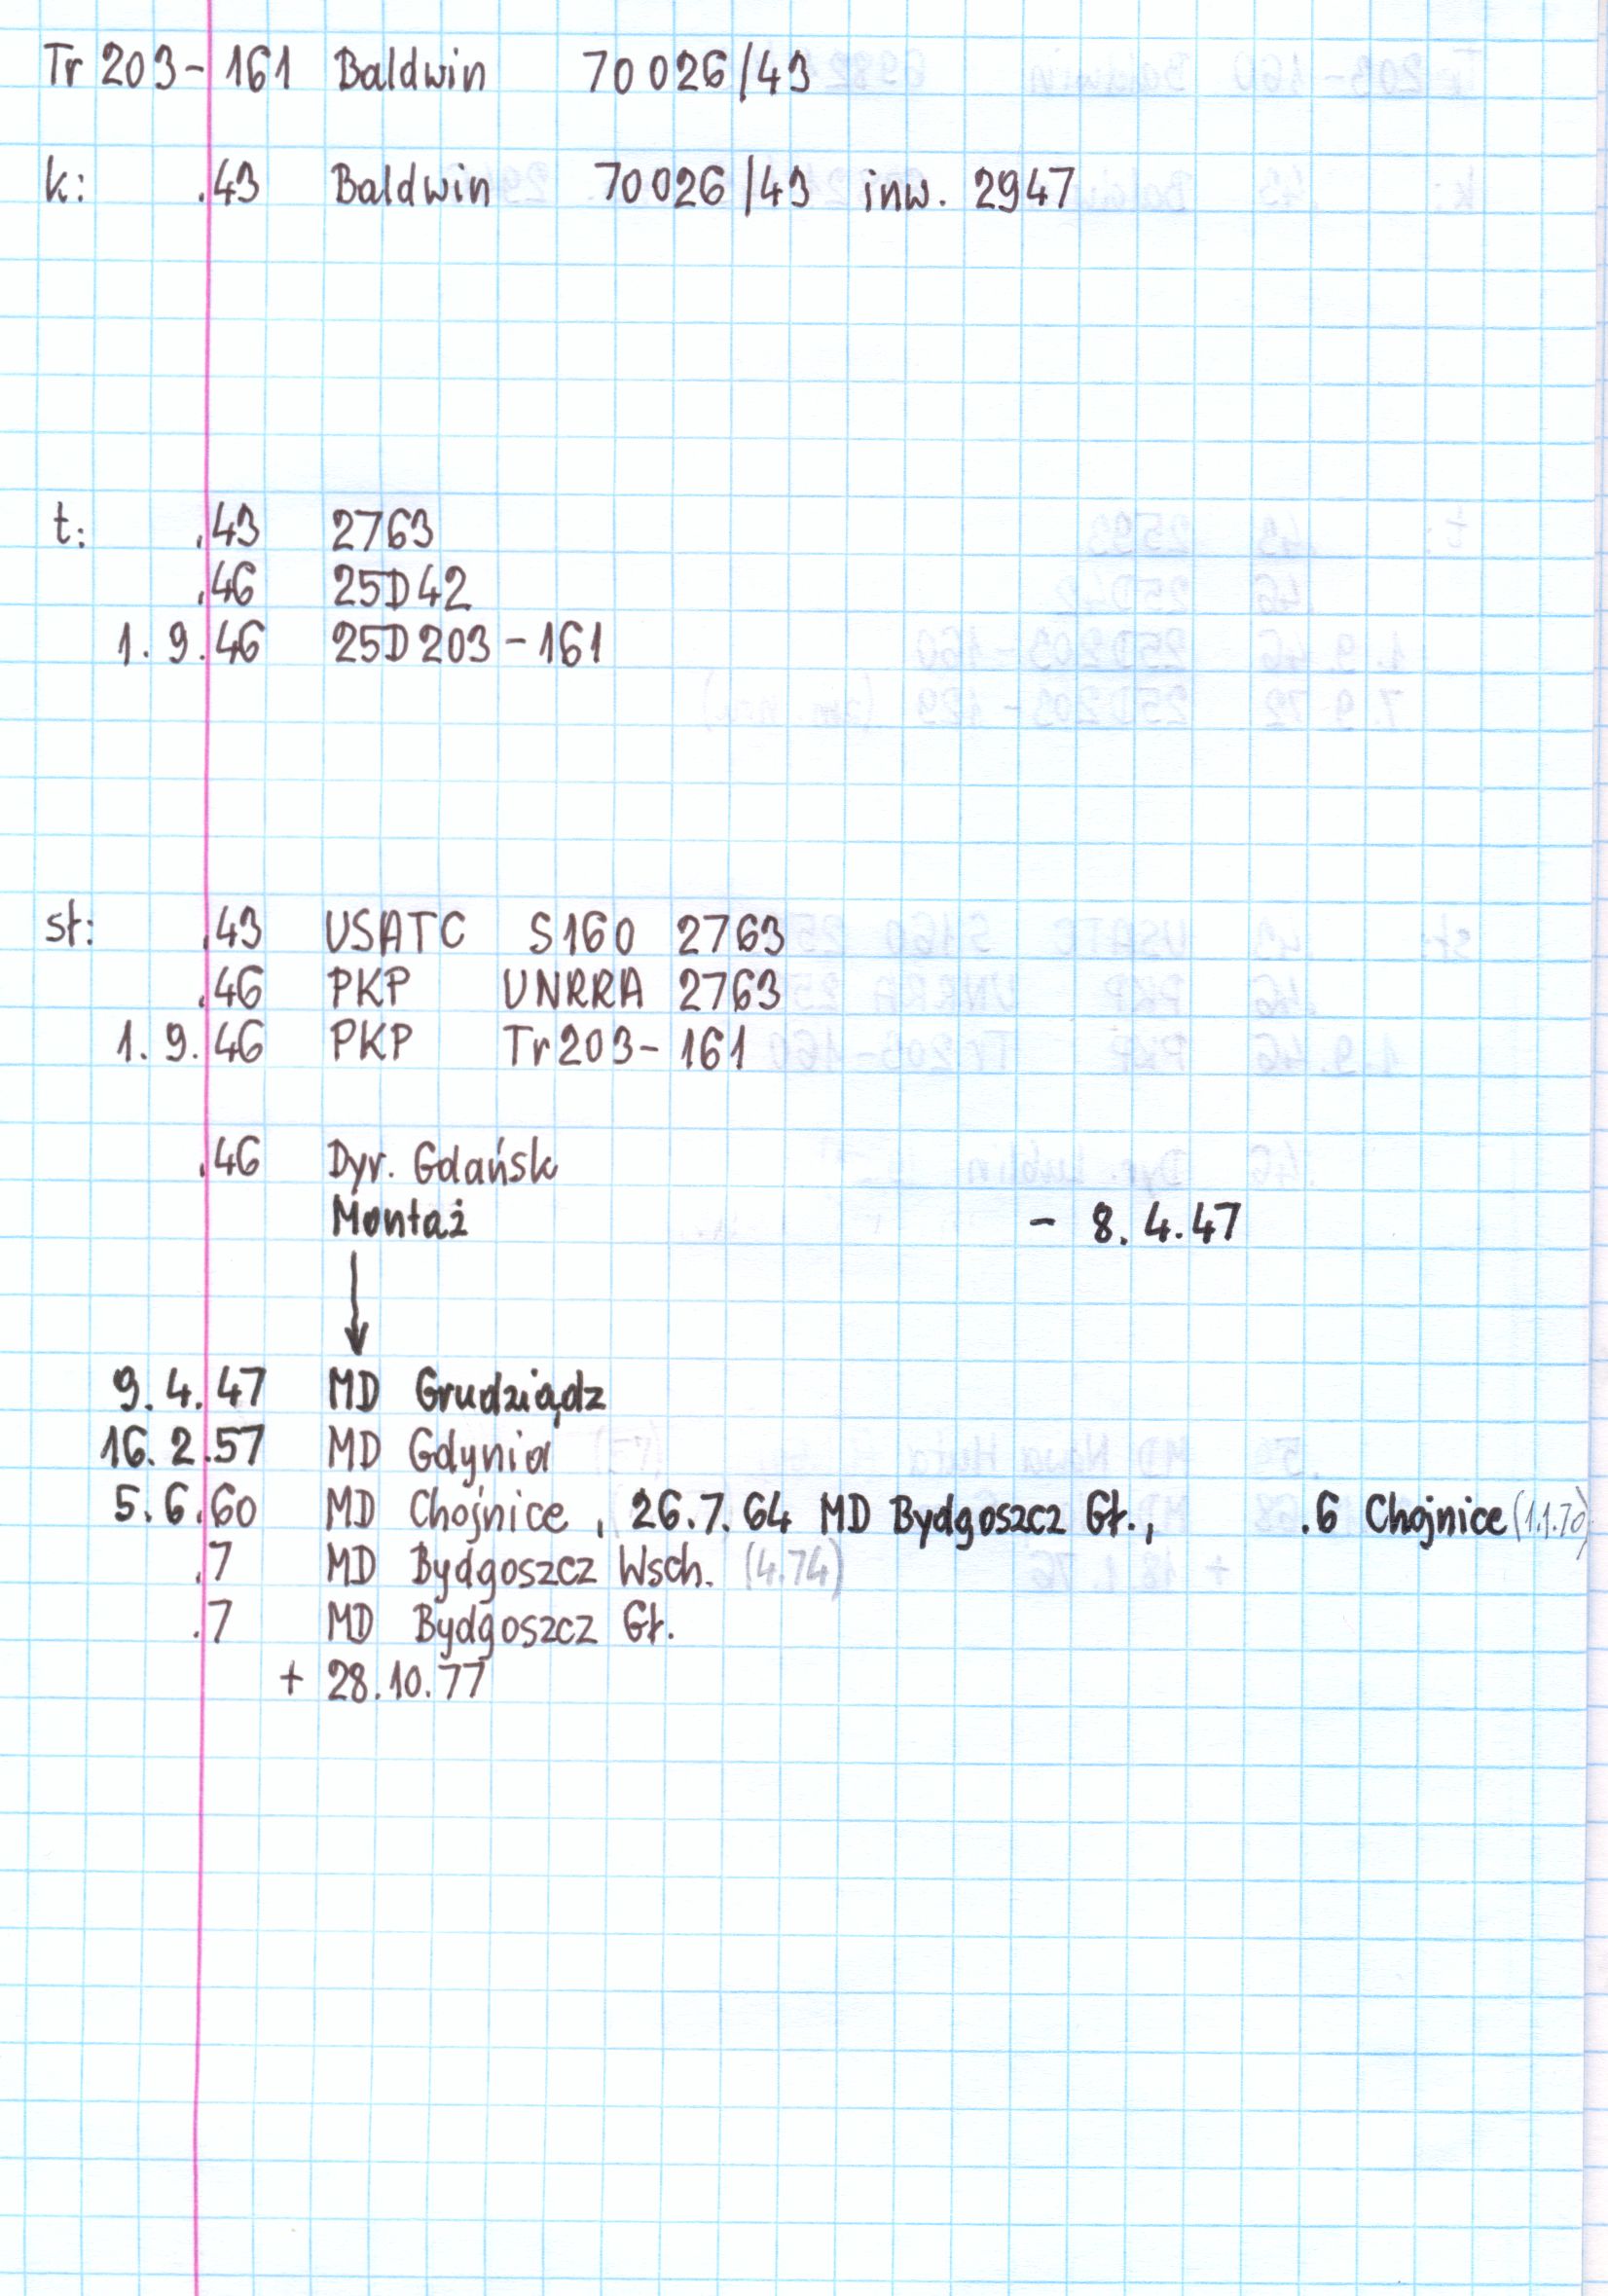 Tr 203-161 Baldwin 70026/43
k: .43 Baldwin 70026/43 inw. 2947
t: .43 2763
.46 25D42
1.9.46 25D203-161
st: .43 USATC S160 2763
.46 PKP UNRRA 2763
1.9.46 PKP Tr203-161
.46 Dyr. Gdańsk
Montaż - 8.4.47
9.4.47 MD Grudziądz
16.2.57 MD Gdynia
5.6.60 MD Chojnice, 26.7.64 MD Bydgoszcz Gł., .6 Chojnice (1.1.70)
.7 MD Bydgoszcz Wsch. (4.74)
.7 MD Bydgoszcz Gł.
+ 28.10.77